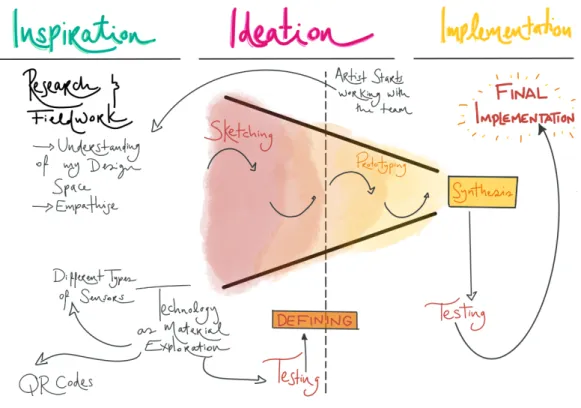 Inspiration
Ideation
Implementation
Research &
Fieldwork
→ Understanding
of my Design
Space
→ Empathise
Artist Starts
working with
the team
Sketching
Prototyping
Synthesis
FINAL
IMPLEMENTATION
Testing
Different Types
of Sensors
Technology
as Material
Exploration
QR Codes
DEFINING
Testing